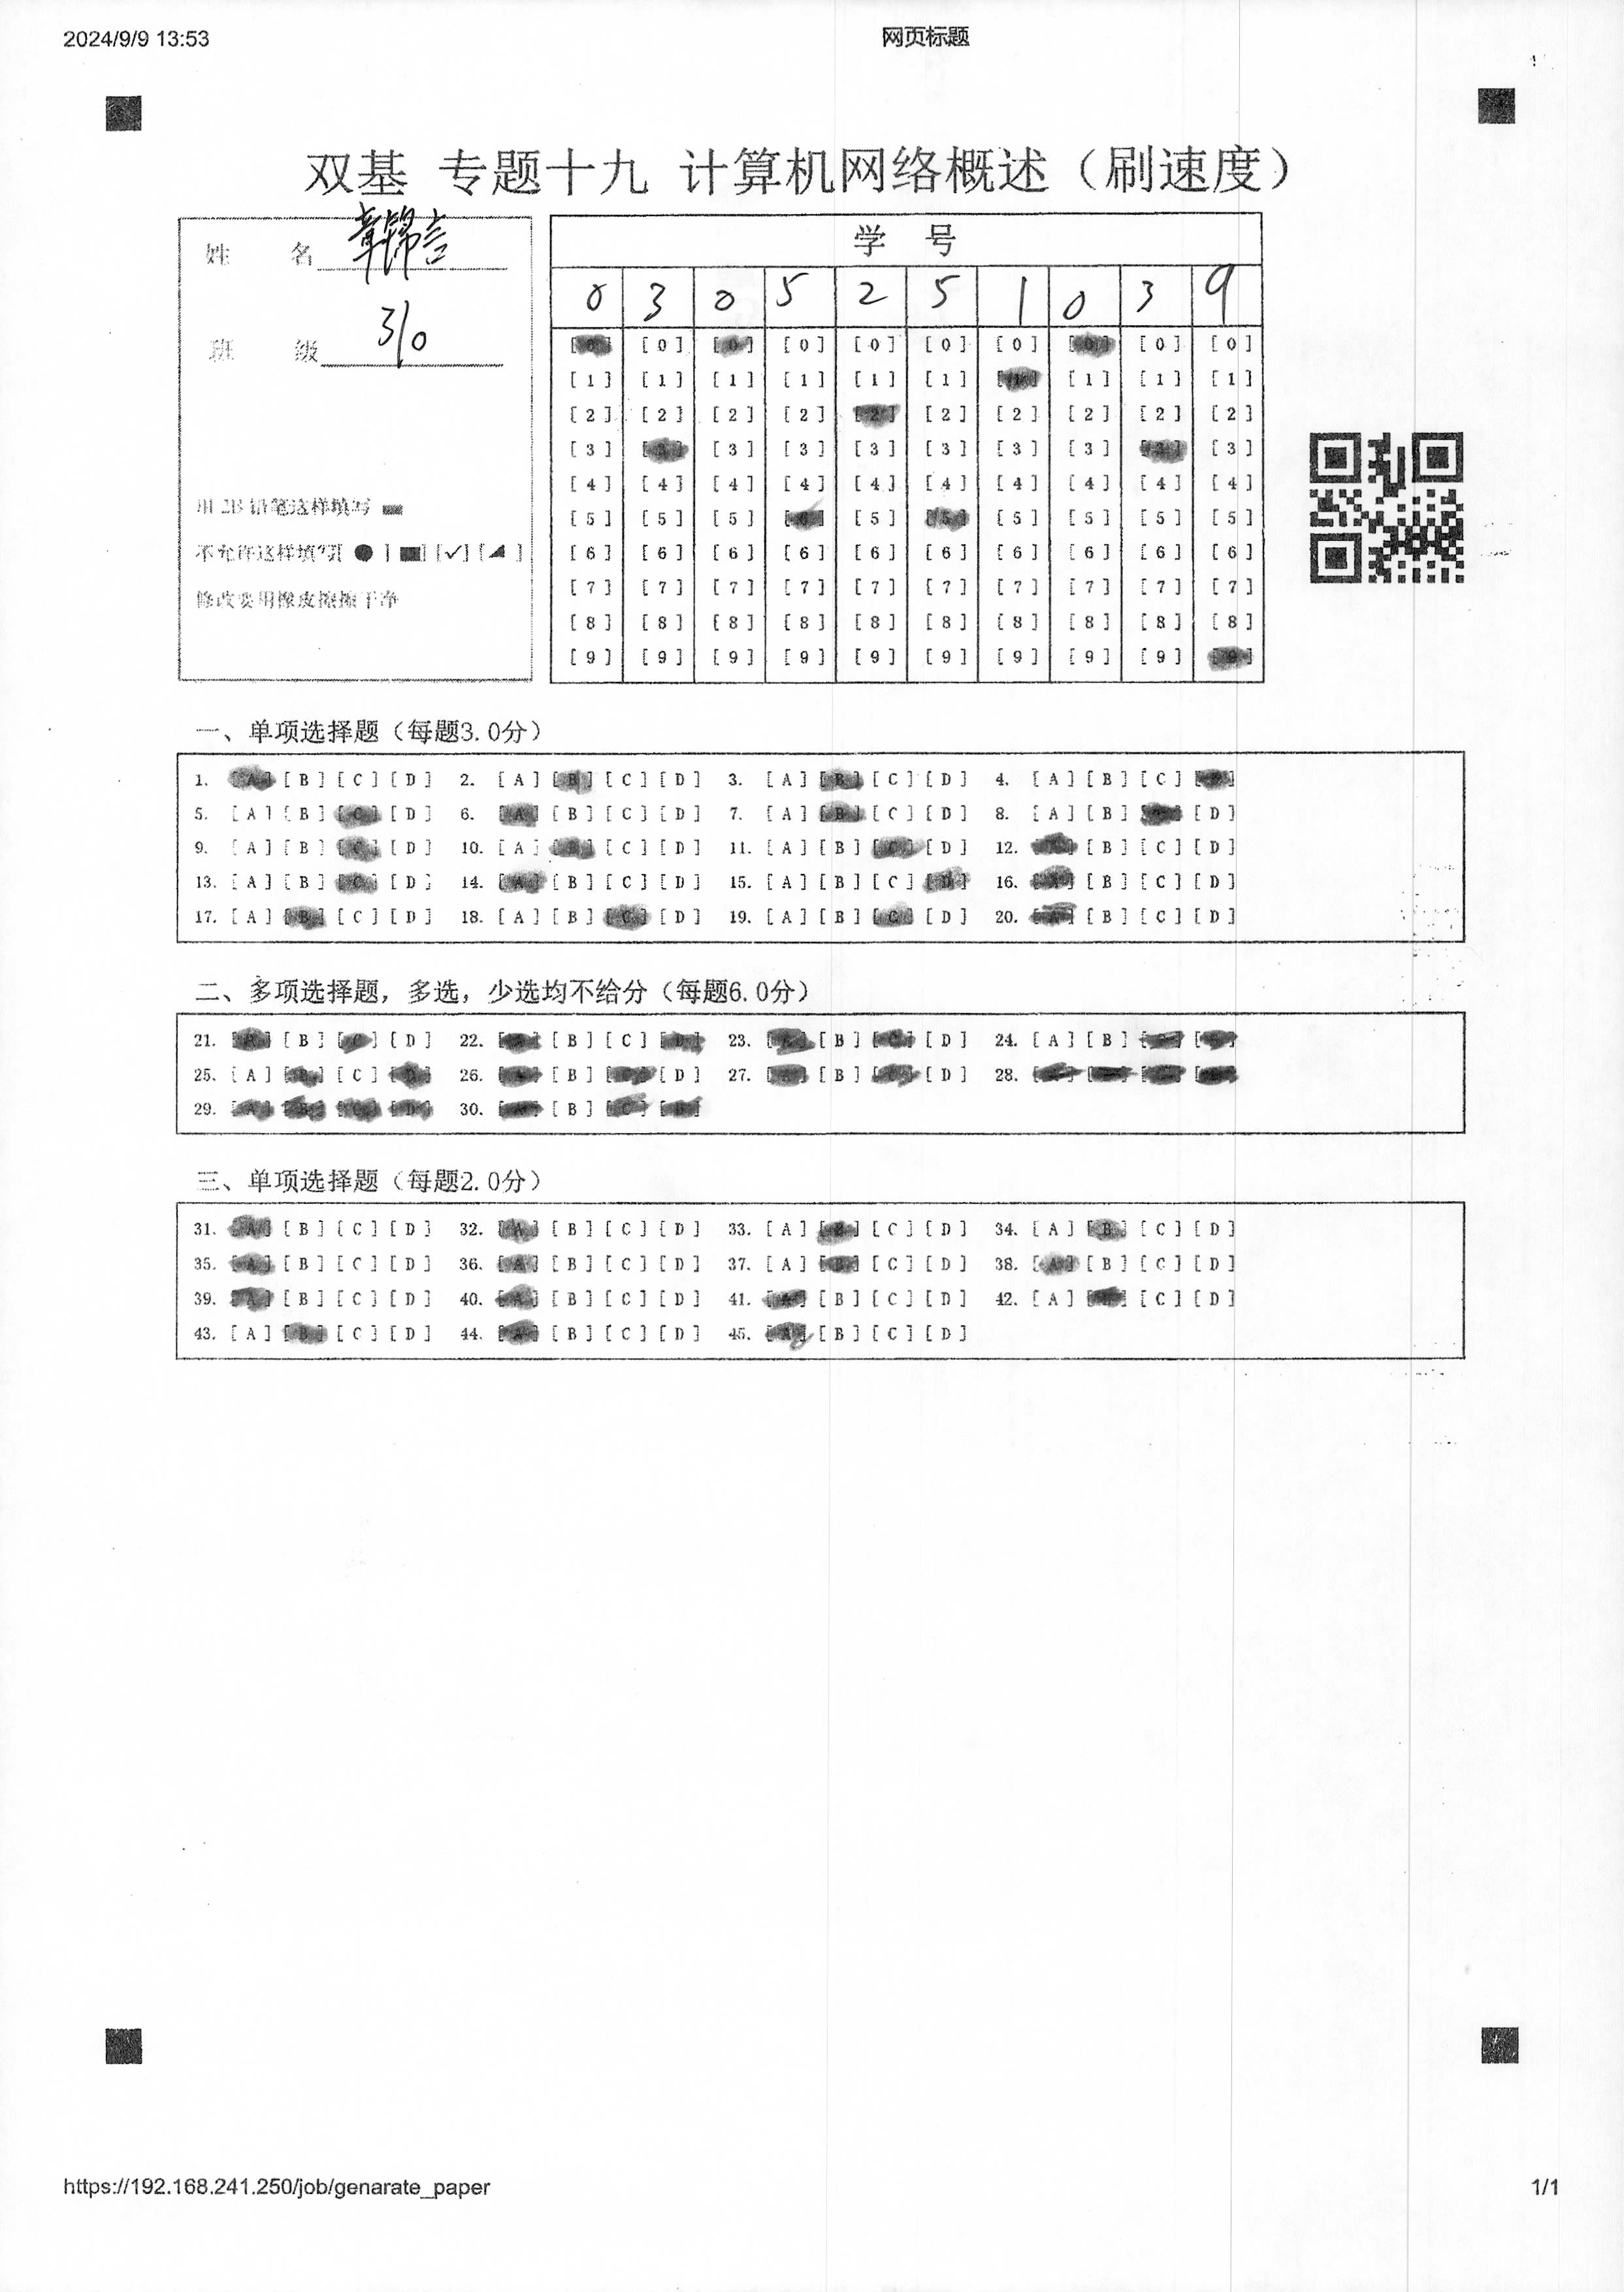 2024/9/9 13:53 网页标题
双基 专题十九 计算机网络概述（刷速度）
姓 名 章锦言
班 级 310
用 2B 铅笔这样填写
不允许这样填写[ ● ] [■] [✓] [◢ ]
修改要用橡皮擦擦干净
学 号
0 3 0 5 2 5 1 0 3 9
[0] [0] [0] [0] [0] [0] [0] [0] [0] [0]
[1] [1] [1] [1] [1] [1] [1] [1] [1] [1]
[2] [2] [2] [2] [2] [2] [2] [2] [2] [2]
[3] [3] [3] [3] [3] [3] [3] [3] [3] [3]
[4] [4] [4] [4] [4] [4] [4] [4] [4] [4]
[5] [5] [5] [5] [5] [5] [5] [5] [5] [5]
[6] [6] [6] [6] [6] [6] [6] [6] [6] [6]
[7] [7] [7] [7] [7] [7] [7] [7] [7] [7]
[8] [8] [8] [8] [8] [8] [8] [8] [8] [8]
[9] [9] [9] [9] [9] [9] [9] [9] [9] [9]
一、单项选择题（每题3.0分）
1. [A] [B] [C] [D] 2. [A] [B] [C] [D] 3. [A] [B] [C] [D] 4. [A] [B] [C] [D]
5. [A] [B] [C] [D] 6. [A] [B] [C] [D] 7. [A] [B] [C] [D] 8. [A] [B] [C] [D]
9. [A] [B] [C] [D] 10. [A] [B] [C] [D] 11. [A] [B] [C] [D] 12. [A] [B] [C] [D]
13. [A] [B] [C] [D] 14. [A] [B] [C] [D] 15. [A] [B] [C] [D] 16. [A] [B] [C] [D]
17. [A] [B] [C] [D] 18. [A] [B] [C] [D] 19. [A] [B] [C] [D] 20. [A] [B] [C] [D]
二、多项选择题，多选，少选均不给分（每题6.0分）
21. [A] [B] [C] [D] 22. [A] [B] [C] [D] 23. [A] [B] [C] [D] 24. [A] [B] [C] [D]
25. [A] [B] [C] [D] 26. [A] [B] [C] [D] 27. [A] [B] [C] [D] 28. [A] [B] [C] [D]
29. [A] [B] [C] [D] 30. [A] [B] [C] [D]
三、单项选择题（每题2.0分）
31. [A] [B] [C] [D] 32. [A] [B] [C] [D] 33. [A] [B] [C] [D] 34. [A] [B] [C] [D]
35. [A] [B] [C] [D] 36. [A] [B] [C] [D] 37. [A] [B] [C] [D] 38. [A] [B] [C] [D]
39. [A] [B] [C] [D] 40. [A] [B] [C] [D] 41. [A] [B] [C] [D] 42. [A] [B] [C] [D]
43. [A] [B] [C] [D] 44. [A] [B] [C] [D] 45. [A] [B] [C] [D]
https://192.168.241.250/job/genarate_paper 1/1